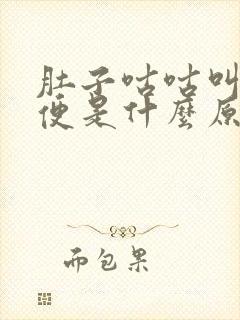 肚子咕咕叫
便是什麼原
而包果